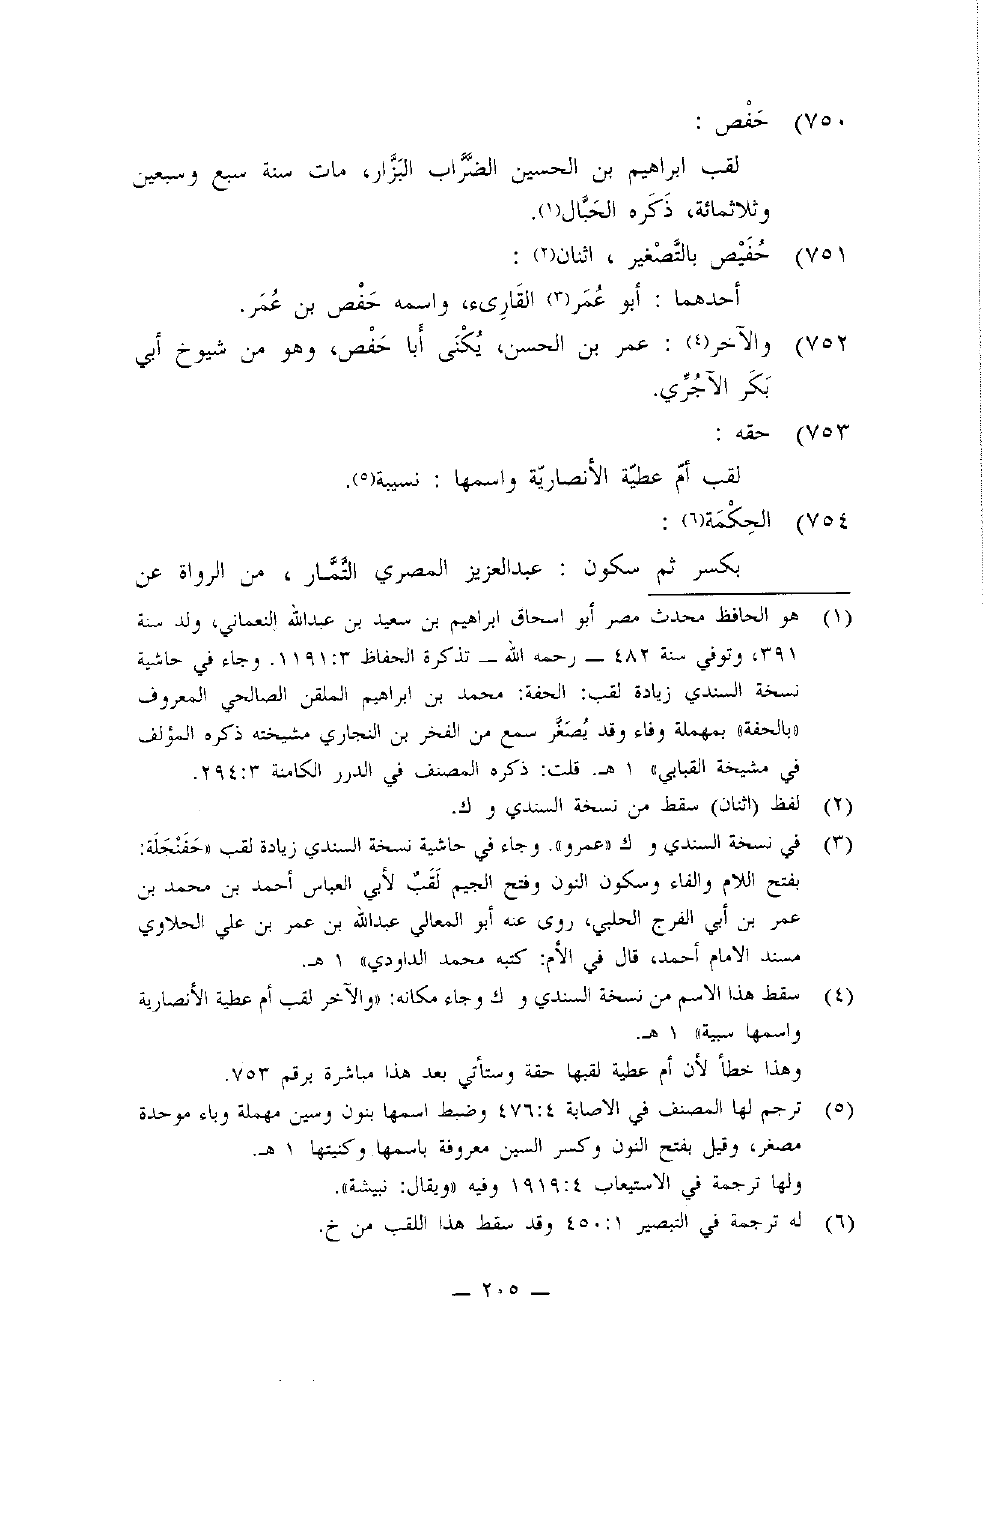 ٧٥٠) حَفْص :
لقب ابراهيم بن الحسين الضَّرَّاب البَزَّار، مات سنة سبع وسبعين
وثلاثمائة، ذَكَره الحَبَّال(١).
٧٥١) حُفَيْص بالتَّصْغير ، اثنان(٢) :
أحدهما : أبو عُمَر(٣) القَارِىء، واسمه حَفْص بن عُمَر.
٧٥٢) والآخر(٤) : عمر بن الحسن، يُكْنَى أَبا حَفْص، وهو من شيوخ أبي
بَكَر الآجُرِّي.
٧٥٣) حقه :
لقب أمّ عطيّة الأنصاريّة واسمها : نسيبة(٥).
٧٥٤) الحِكْمَة(٦) :
بكسر ثم سكون : عبدالعزيز المصري التَّمَّار ، من الرواة عن
(١) هو الحافظ محدث مصر أبو اسحاق ابراهيم بن سعيد بن عبدالله النعماني، ولد سنة
٣٩١، وتوفي سنة ٤٨٢ ــ رحمه الله ــ تذكرة الحفاظ ٣:١١٩١. وجاء في حاشية
نسخة السندي زيادة لقب: الحفة: محمد بن ابراهيم الملقن الصالحي المعروف
«بالحفة» بمهملة وفاء وقد يُصَغَّر سمع من الفخر بن النجاري مشيخته ذكره المؤلف
في مشيخة القبابي» ١ هـ. قلت: ذكره المصنف في الدرر الكامنة ٣:٢٩٤.
(٢) لفظ (اثنان) سقط من نسخة السندي و ك.
(٣) في نسخة السندي و ك «عمرو». وجاء في حاشية نسخة السندي زيادة لقب «حَفَنْجَلَة:
بفتح اللام والفاء وسكون النون وفتح الجيم لَقَبٌ لأبي العباس أحمد بن محمد بن
عمر بن أبي الفرج الحلبي، روى عنه أبو المعالي عبدالله بن عمر بن علي الحلاوي
مسند الامام أحمد، قال في الأم: كتبه محمد الداودي» ١ هـ.
(٤) سقط هذا الاسم من نسخة السندي و ك وجاء مكانه: «والآخر لقب أم عطية الأنصارية
واسمها سبية» ١ هـ.
وهذا خطأ لأن أم عطية لقبها حقة وستأتي بعد هذا مباشرة برقم ٧٥٣.
(٥) ترجم لها المصنف في الاصابة ٤:٤٧٦ وضبط اسمها بنون وسين مهملة وباء موحدة
مصغر، وقيل بفتح النون وكسر السين معروفة باسمها وكنيتها ١ هـ.
ولها ترجمة في الاستيعاب ٤:١٩١٩ وفيه «ويقال: نبيشة».
(٦) له ترجمة في التبصير ١:٤٥٠ وقد سقط هذا اللقب من خ.
ــ ٢٠٥ ــ